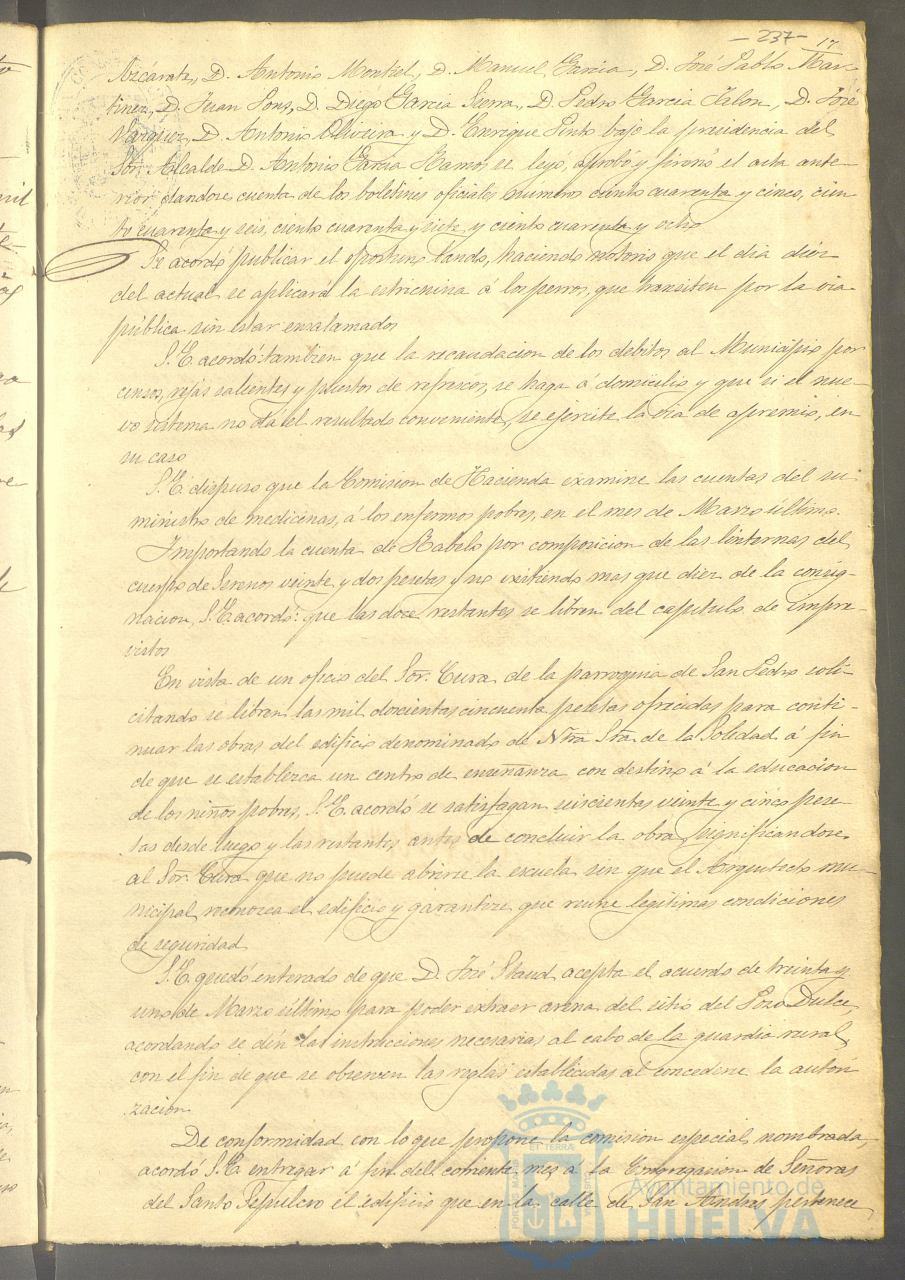 - 237 - 17.
Azcárate, D. Antonio Montiel, D. Manuel Garcia, D. José Pablo Mar-
tinez, D. Juan Pons, D. Diego Garcia Sierra, D. Pedro Garcia Jalon, D. José
Vazquez, D. Antonio Oliveira y D. Enrique Pinto bajo la presidencia del
Sor. Alcalde D. Antonio Garcia Ramos se leyo, aprobó y firmó el acta ante-
rior dandose cuenta de los boletines oficiales numeros ciento cuarenta y cinco, cien-
to cuarenta y seis, ciento cuarenta y siete y ciento cuarenta y ocho
Se acordó publicar el oportuno bando, haciendo notorio que el dia diez
del actual se aplicará la estricnina á los perros, que transiten por la via
pública sin estar
S.E. acordó tambien que la recaudacion de los debitos al Municipio por
censos, rejas salientes y puestos de refrescos, se haga á domicilio y que si el nue-
vo sistema no dá el resultado conveniente, se ejercite la via de apremio, en
su caso
S.E. dispuso que la Comision de Hacienda examine las cuentas del su
ministro de medicinas, á los enfermos pobres, en el mes de Marzo último.
Importando la cuenta de Rabelo por composicion de las linternas del
cuerpo de Serenos veinte y dos pesetas y no existiendo mas que diez de la consig-
nacion, S.E. acordó: que las doce restantes se libren del capitulo de impre-
vistos
En vista de un oficio del Sor. Cura de la parroquia de San Pedro soli-
citando se libren las mil doscientas cincuenta pesetas ofrecidas para conti-
nuar las obras del edificio denominado de Ntra Sra de la Soledad á fin
de que se establezca un centro de enseñanza con destino á la educacion
de los niños pobres, S.E. acordó se satisfagan seiscientas veinte y cinco pese-
tas desde luego y las restantes antes de concluir la obra, significandose,
al Sor. Cura que no puede abrirse la escuela sin que el Arquitecto mu-
nicipal reconozca el edificio y garantize que reune legitimas condiciones
de seguridad
S.E. quedó enterado de que D. José Staud acepta el acuerdo de treinta y
uno de Marzo último para poder extraer arena del sitio del Pozo Dulce,
acordando se dén las instrucciones necesarias al cabo de la guardia rural,
con el fin de que se observen las reglas establecidas al concederse la autori
zacion
De conformidad con lo que propone la comision especial nombrada,
acordó S.E. entregar á fin del corriente mes, á la Congregacion de Señoras
del Santo Sepulcro el edificio que en la calle de San Andres pertenece
Ayuntamiento de
HUELVA